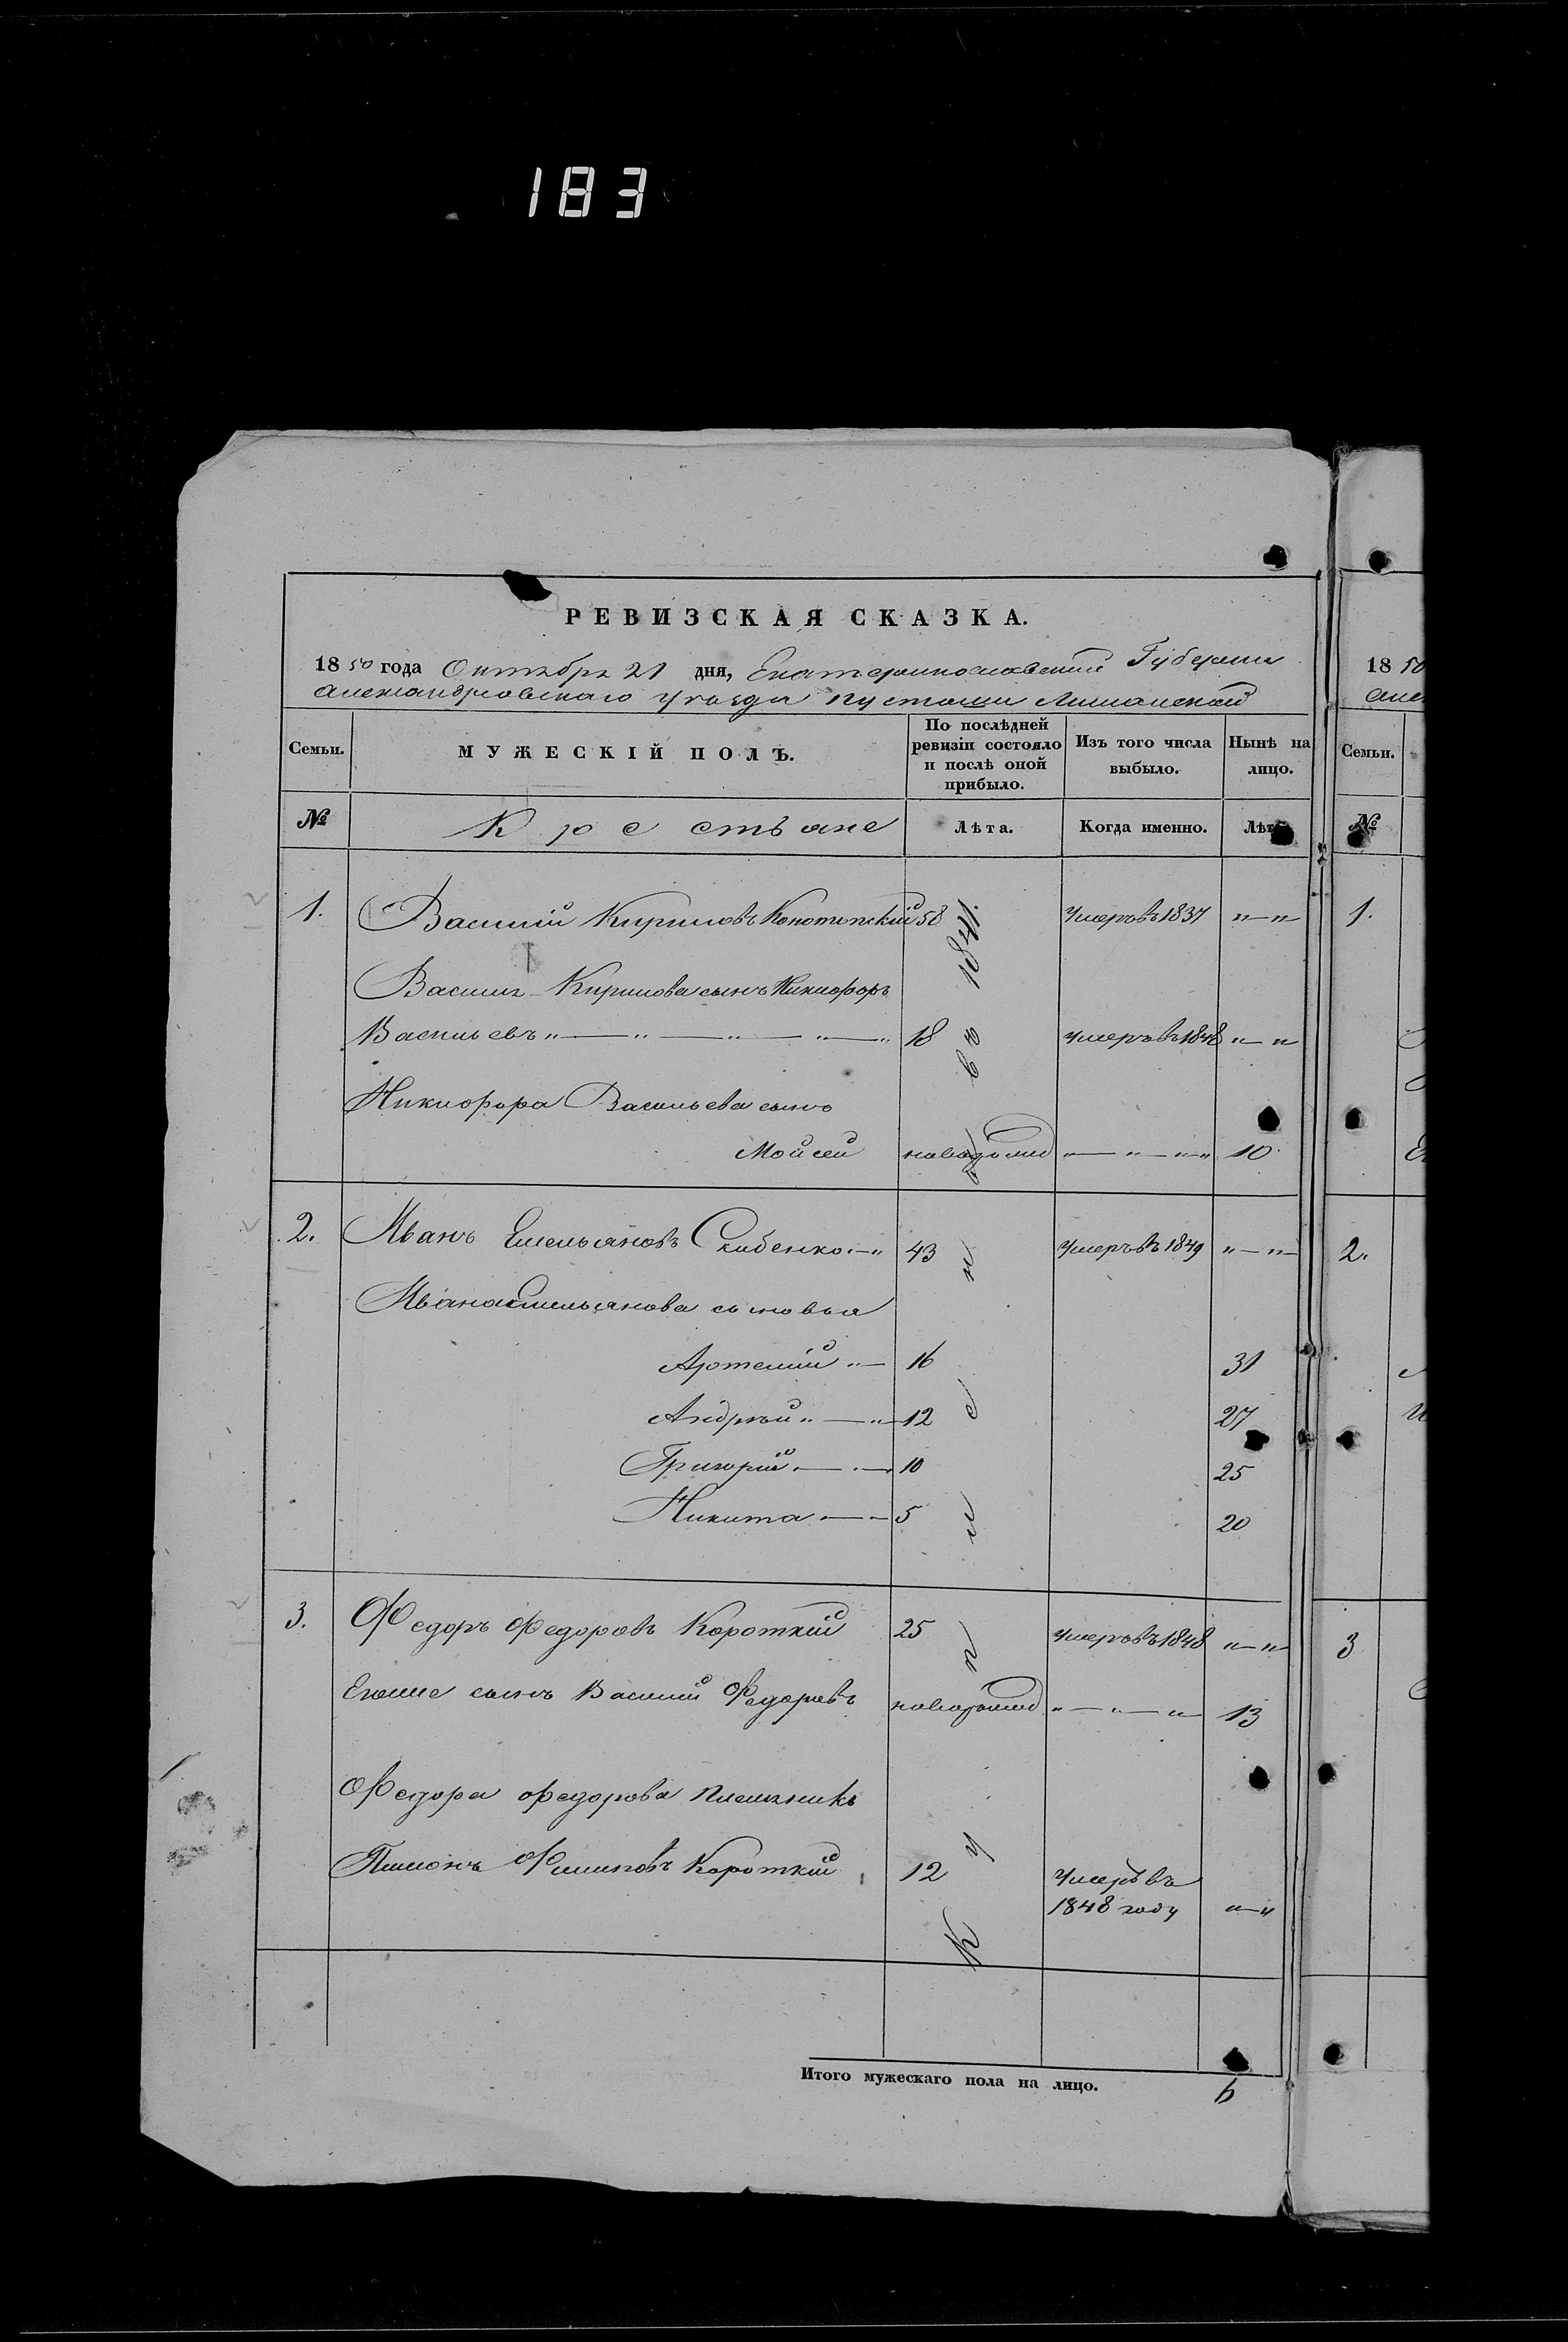 183
РЕВИЗСКАЯ СКАЗКА.
1850 года Октября 21 дня, Екатеринославской Губернии
Александровскаго уѣзда пустоши
Семьи.
МУЖЕСКІЙ ПОЛЪ.
По послѣдней ревизіи состояло и послѣ оной прибыло.
Изъ того числа выбыло.
Нынѣ на лицо.
№
Крестьяне
Лѣта.
Когда именно.
Лѣт
Куплены въ 1841.
1. Василій Кириловъ Конотопскій 58 Умеръ въ 1837 "—"
Василія Кирилова сынъ Никифоръ
Васильевъ "—"—"—"—" 18 умеръ въ 1848 "—"
Никифора Васильева сынъ
Мойсей новорожд "—"—"" 10
2. Иванъ Емельяновъ Скибенко "—" 43 Умеръ въ 1849 "—"
Ивана Емельянова сыновья
Артемій "— 16 31
Андрѣй "—" 12 27
Григорій — 10 25
Никита — 5 20
3. Федоръ Федоровъ Короткій 25 Умеръ въ 1848 "—"
Егоже сынъ Василій Федоровъ новорожд "—"—" 13
Федора Федорова племянникъ
Филиповъ Короткій 12 Умеръ въ
1848 году "—"
Итого мужескаго пола на лицо. 6
18 50
Алек
Семьи.
№
1.
2.
3